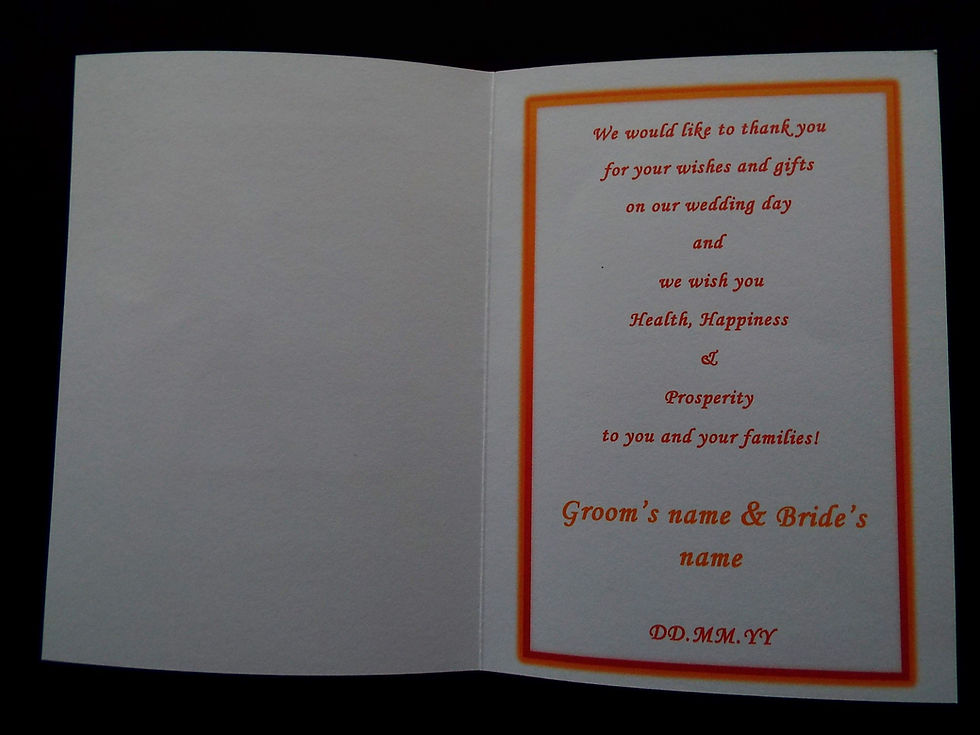 We would like to thank you
for your wishes and gifts
on our wedding day
and
we wish you
Health, Happiness
&
Prosperity
to you and your families!
Groom's name & Bride's
name
DD.MM.YY